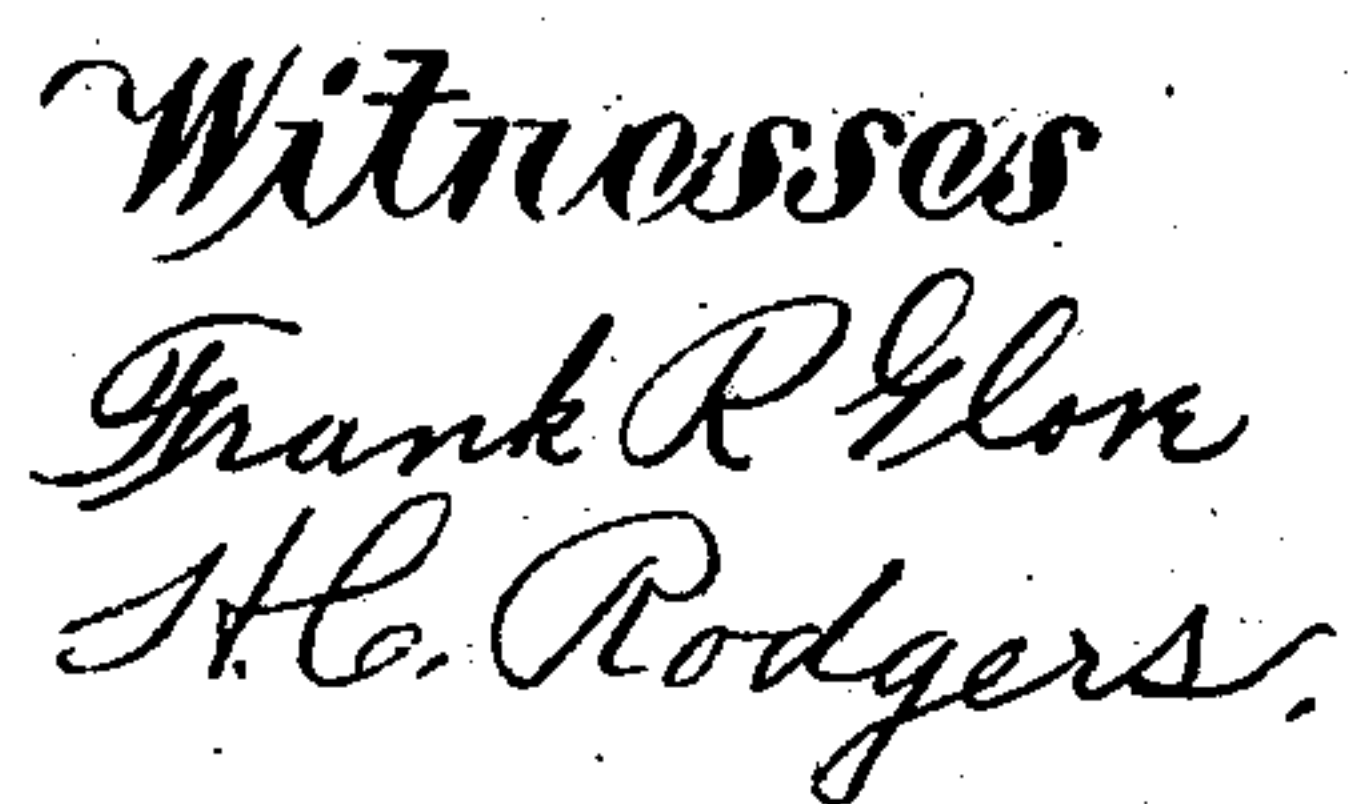 Witnesses
Frank R Glore
H. C. Rodgers.